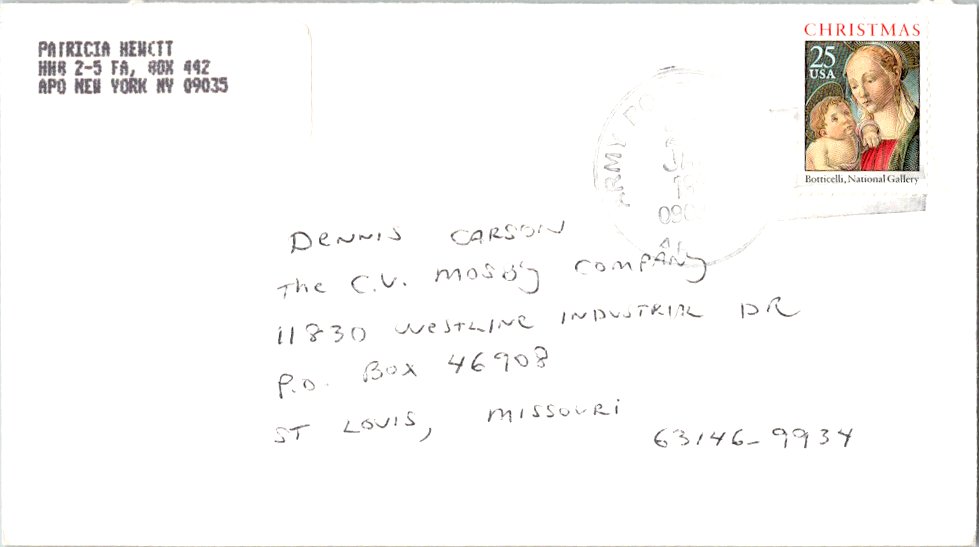 PATRICIA HEWITT
HHB 2-5 FA, BOX 442
APO NEW YORK NY 09035
CHRISTMAS
25
USA
Botticelli, National Gallery
ARMY
Dennis Carson
The C.V. Mosby Company
11830 Westline Industrial DR
P.O. Box 46908
ST Louis, Missouri
63146-9934